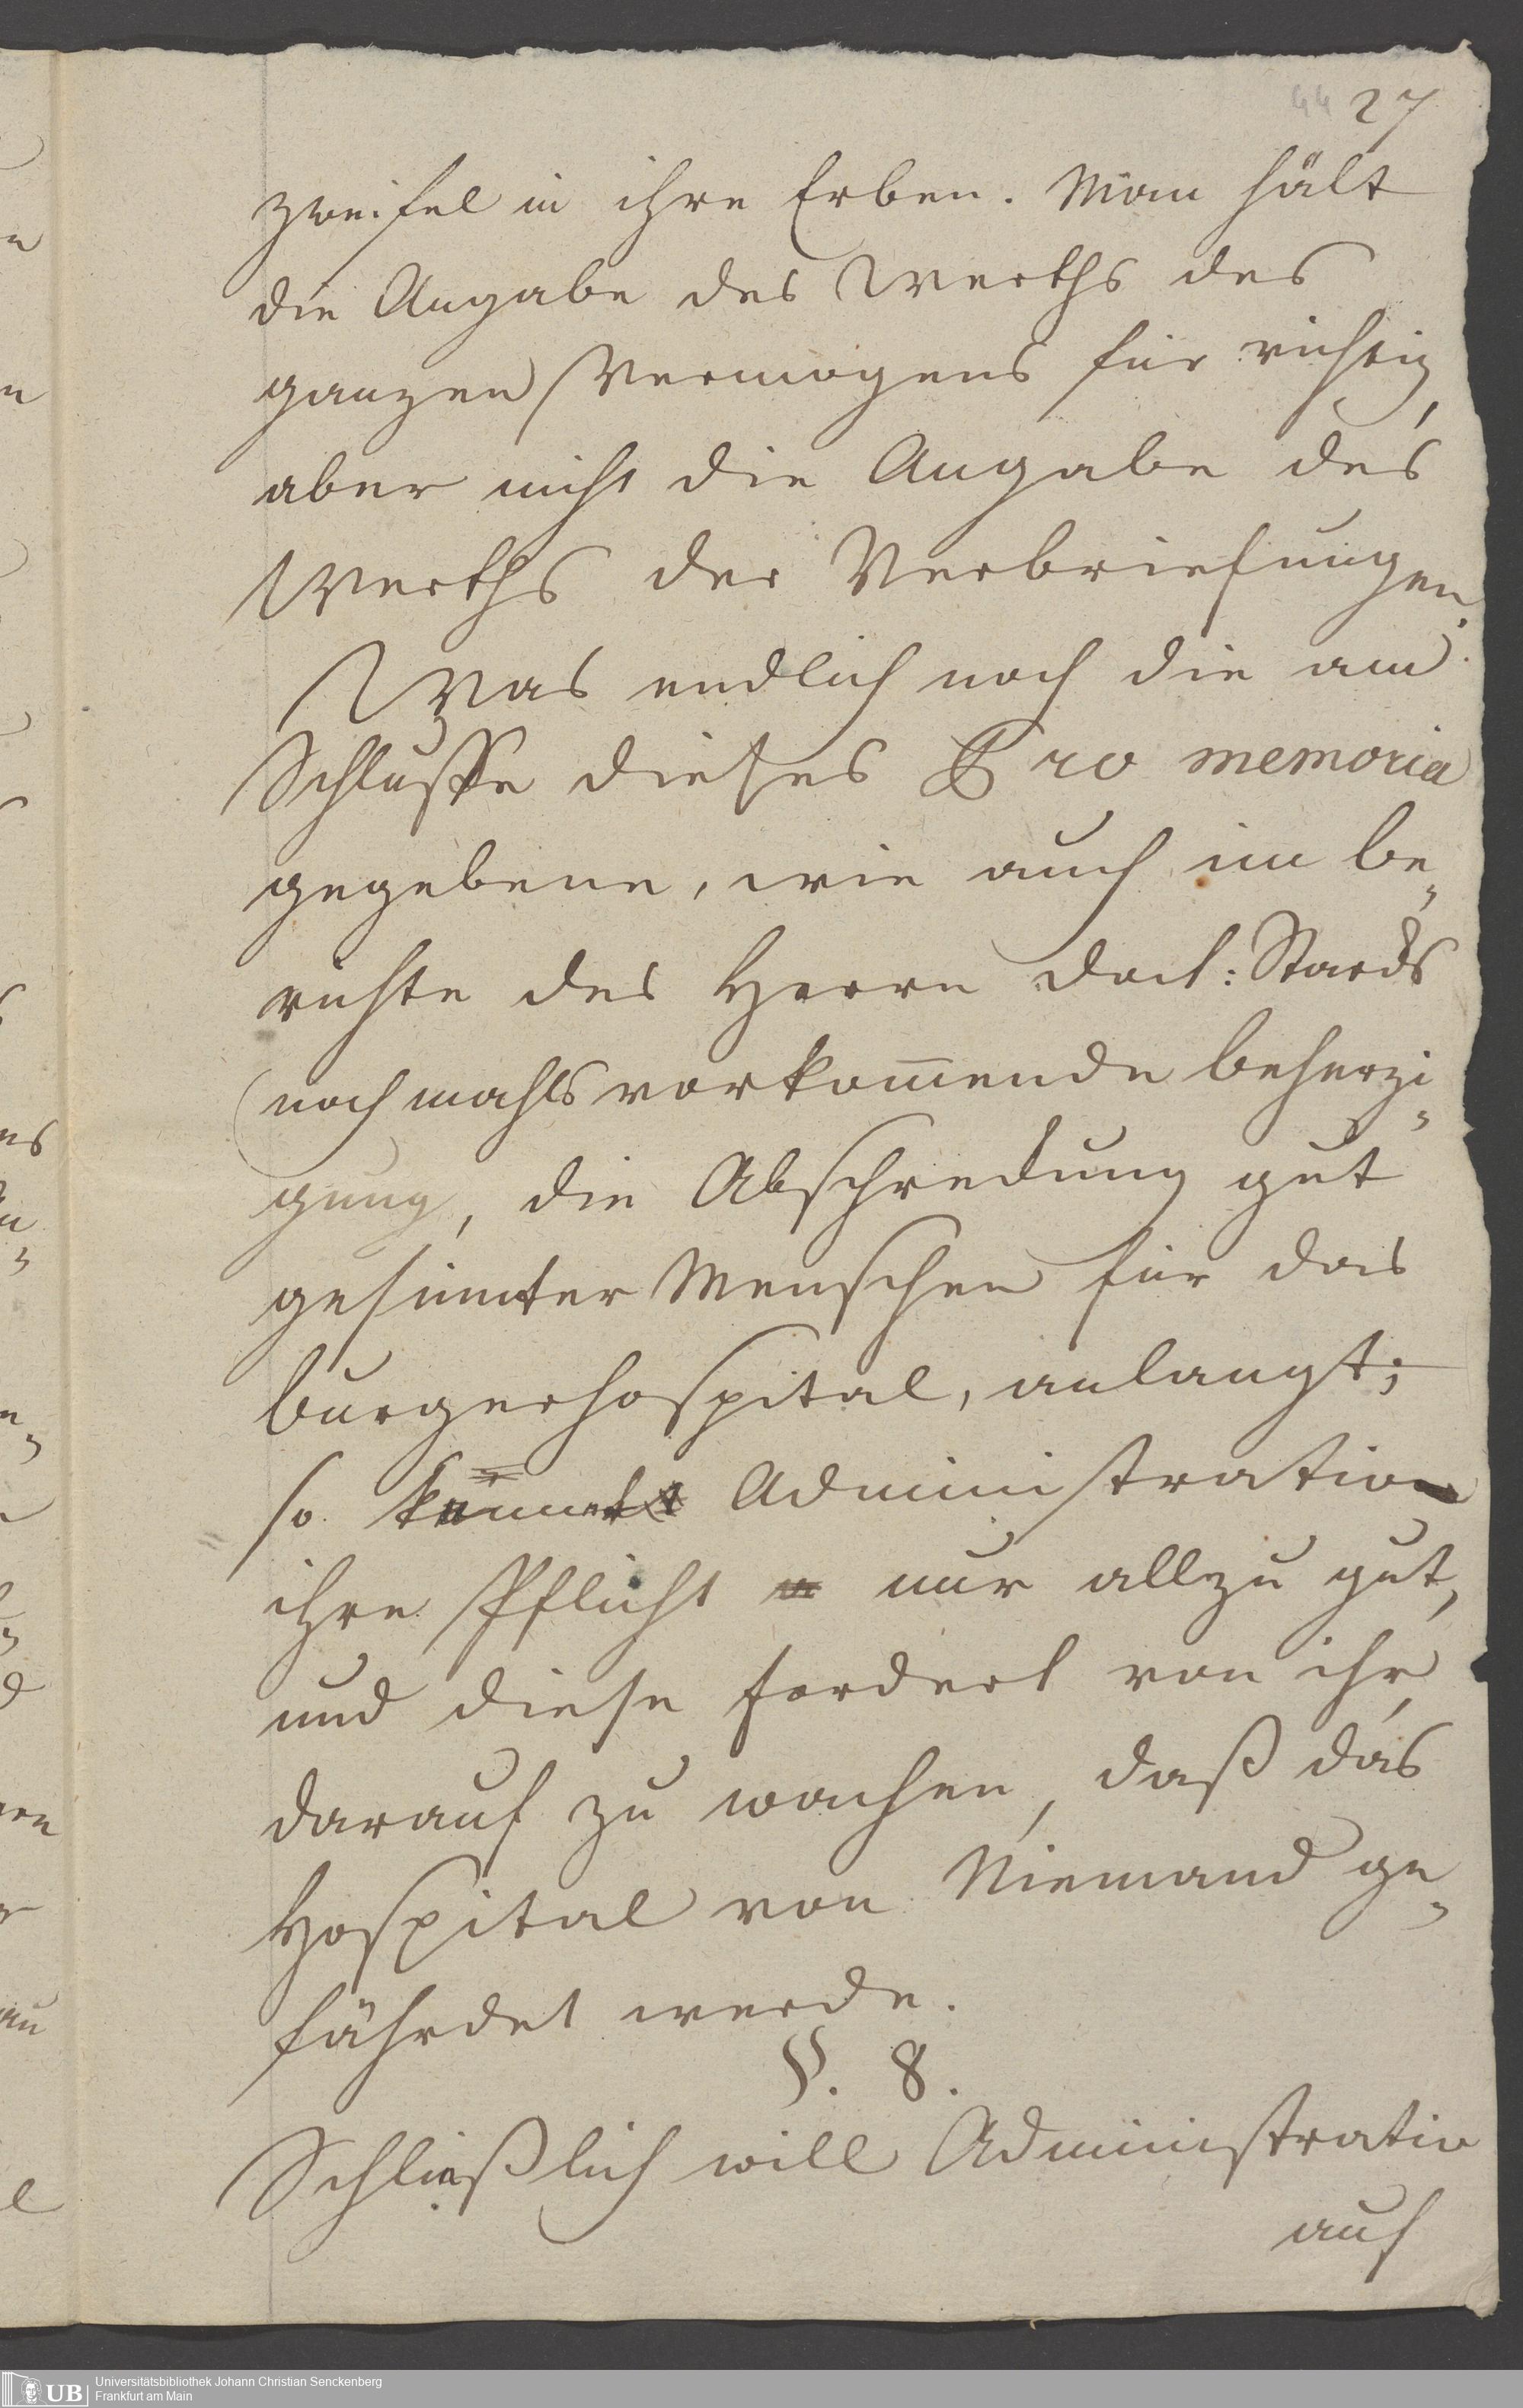 44 27
zweifel in ihre Erben. Man hält
die Angabe des Werths des
ganzen Vermogens für richtig,
aber nicht die Angabe des
Werths der Verbriefungen.
Was endlich noch die am
Schlusse dieses Pro memoria
gegebene, wie auch im be„
richte des Herrn Doct:
noch mahls vorkom̅ende beherzi„
gung, die Abschreckung gut
gesinnter Menschen für das
burgerhospital, anlangt;
so kennet Administration
ihre Pflicht nur allzu gut,
und diese fordert von ihr,
darauf zu wachen, daß das
Hospital von Niemand ge„
fährdet werde.
§. 8.
Schließlich will Administratio
auf
UB Universitätsbibliothek Johann Christian Senckenberg
Frankfurt am Main